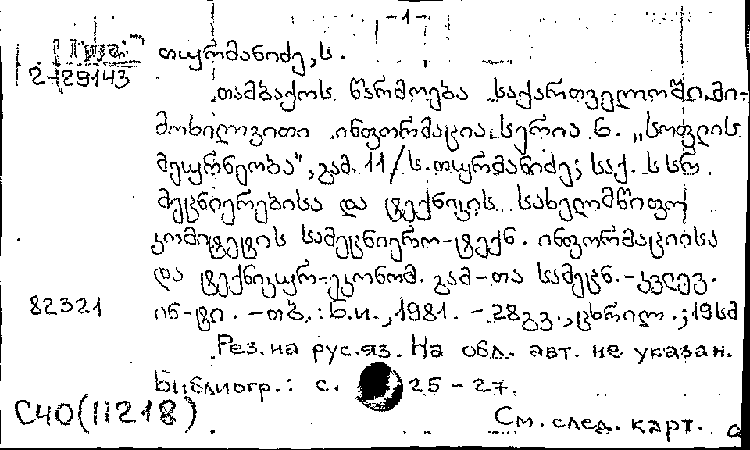 -1-
Груз.
2-29143
თურმანიძე, ს.
თამბაქოს წარმოება საქართველოში. მი-
მოხილვითი ინფორმაცია. სერია 6. „სოფლის
მეურნეობა", გამ. 11/ს. თურმანიძე; საქ. სსრ.
მეცნიერებისა და ტექნიკის სახელმწიფო
კომიტეტის სამეცნიერო-ტექნ. ინფორმაციისა
და ტექნიკურ-ეკონომ. გამ-თა სამეცნ.-კვლევ.
82321
ინ-ტი. -თბ.: ბ.ი., 1981. -28გვ., ცხრილ.; 19სმ
Рез. на рус. яз. На обл. авт. не указан.
Библиогр.: с. 25-27.
С40(11218)
См. след. карт.